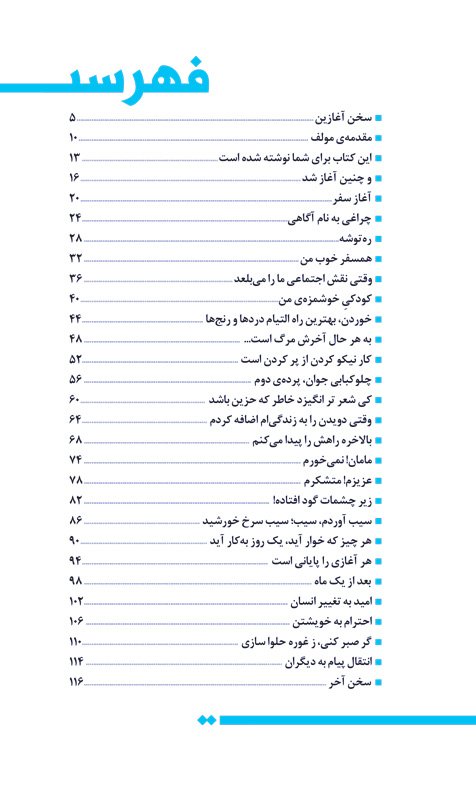 فهرست
سخن آغازین ۵
مقدمه‌ی مولف ۱۰
این کتاب برای شما نوشته شده است ۱۳
و چنین آغاز شد ۱۶
آغاز سفر ۲۰
چراغی به نام آگاهی ۲۴
ره‌توشه ۲۸
همسفر خوب من ۳۲
وقتی نقش اجتماعی ما را می‌بلعد ۳۶
کودکیِ خوشمزه‌ی من ۴۰
خوردن، بهترین راه التیام دردها و رنج‌ها ۴۴
به هر حال آخرش مرگ است... ۴۸
کار نیکو کردن از پر کردن است ۵۲
چلوکبابی جوان، پرده‌ی دوم ۵۶
کی شعر تر انگیزد خاطر که حزین باشد ۶۰
وقتی دویدن را به زندگی‌ام اضافه کردم ۶۴
بالاخره راهش را پیدا می‌کنم ۶۸
مامان! نمی‌خورم ۷۴
عزیزم! متشکرم ۷۸
زیر چشمات گود افتاده! ۸۲
سیب آوردم، سیب؛ سیب سرخ خورشید ۸۶
هر چیز که خوار آید، یک روز به‌کار آید ۹۰
هر آغازی را پایانی است ۹۴
بعد از یک ماه ۹۸
امید به تغییر انسان ۱۰۲
احترام به خویشتن ۱۰۶
گر صبر کنی، ز غوره حلوا سازی ۱۱۰
انتقال پیام به دیگران ۱۱۴
سخن آخر ۱۱۶